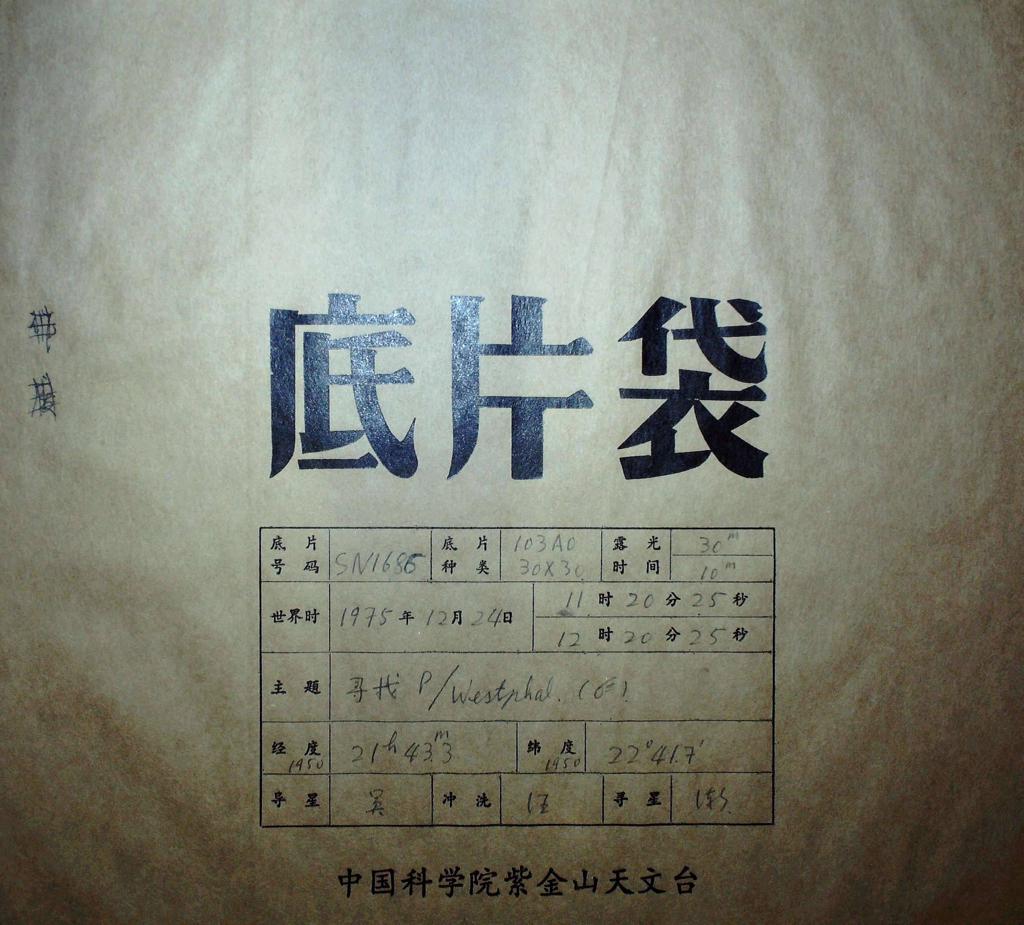 底片袋
底片号码 SN1686 底片种类 103AO 30X30 露光时间 30m 10m
世界时 1975年12月24日 11时20分25秒
12时20分25秒
主题 寻找 P/Westphal.
经度 1950 21h 43m.3 纬度 1950 22°41.7'
导星 吴 冲洗 汪 寻星
中国科学院紫金山天文台